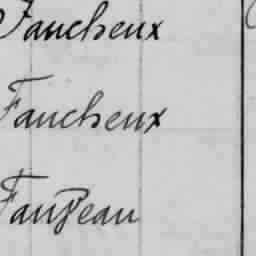 Faucheux
Faucheux
Fauzeau